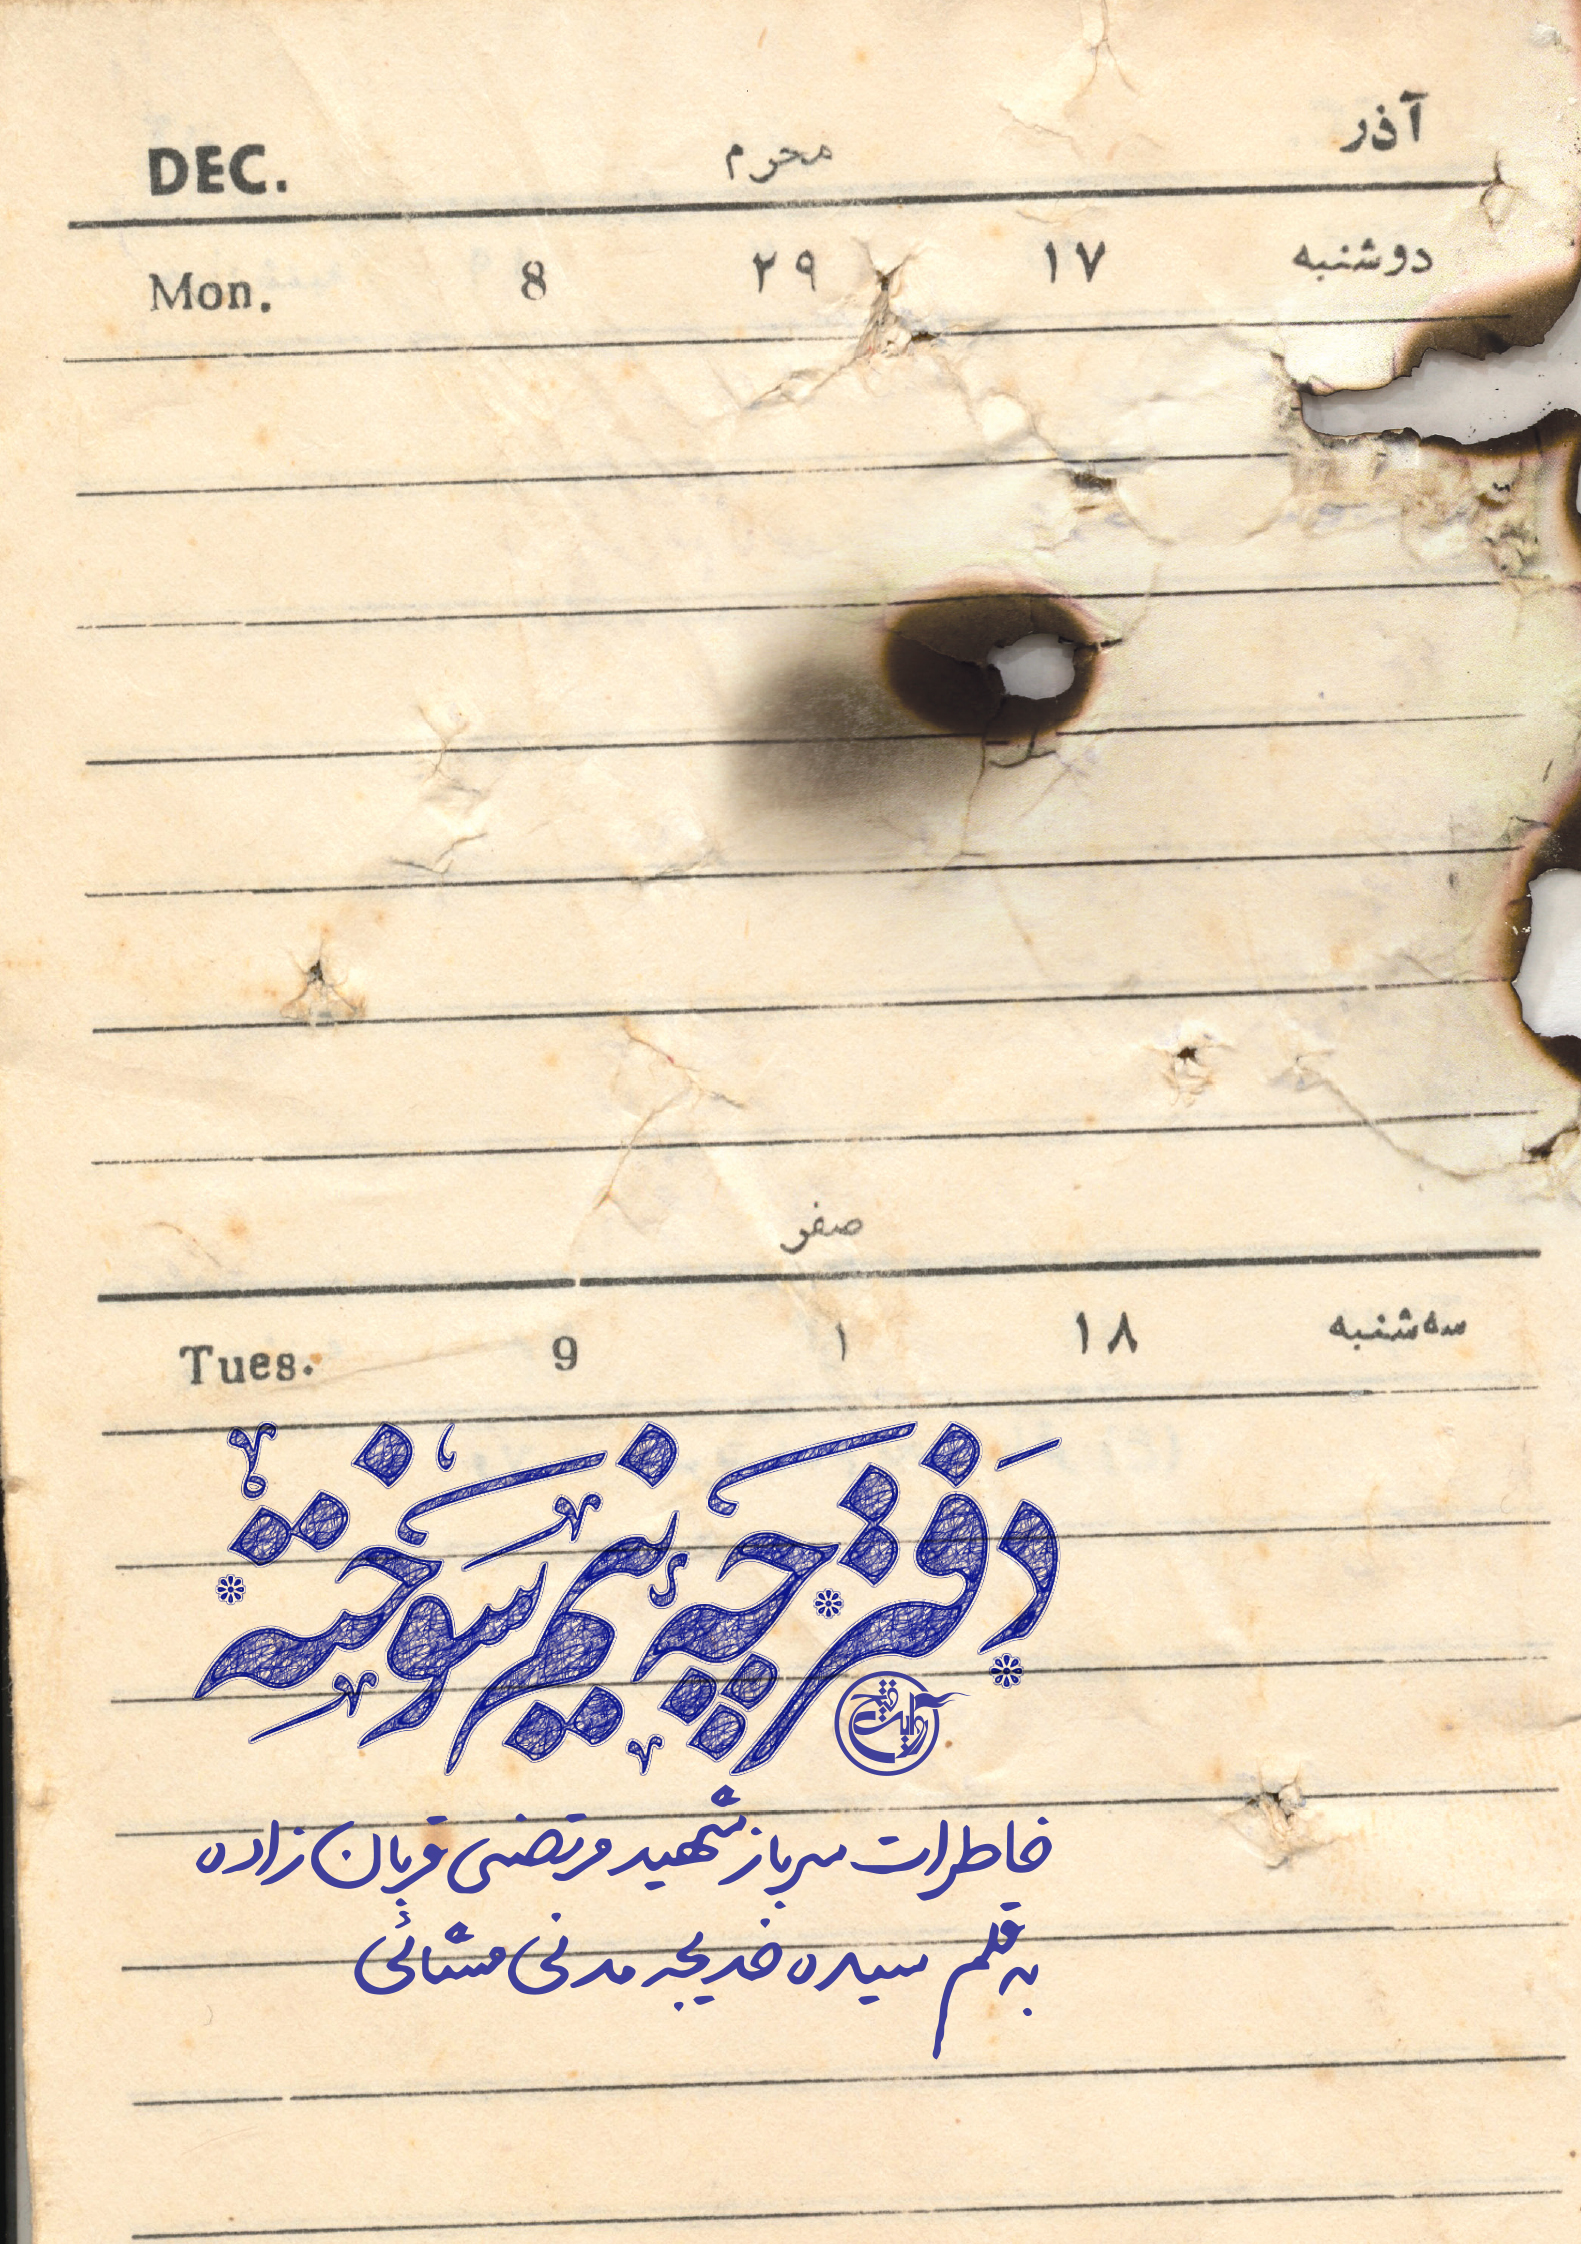 آذر محرم DEC.
دوشنبه ۱۷ ۲۹ 8 Mon.
صفر
سه‌شنبه ۱۸ ۱ 9 Tues.
دَفترچه نیم سوخته
روایت فتح
خاطرات سرباز شهید مرتضی قربان زاده
به قلم سیده خدیجه مدنی مشائی